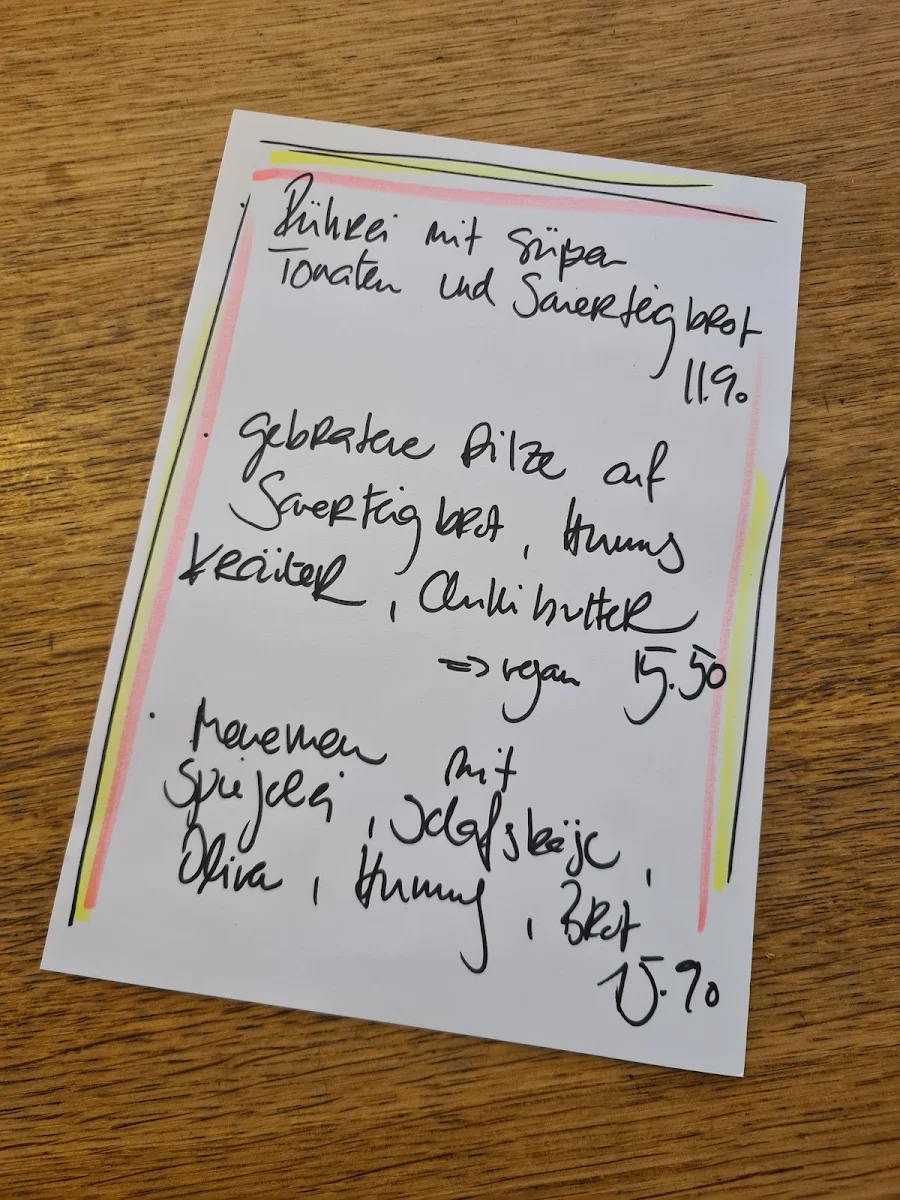 Rührei mit süßen
Tomaten und Sauerteigbrot
11.90
gebratene Pilze auf
Sauerteigbrot, Humus
Kräuter, Chilibutter
=> vegan 15.50
Menemen mit
Spiegelei, Schafskäse,
Oliven, Humus, Brot
15.90